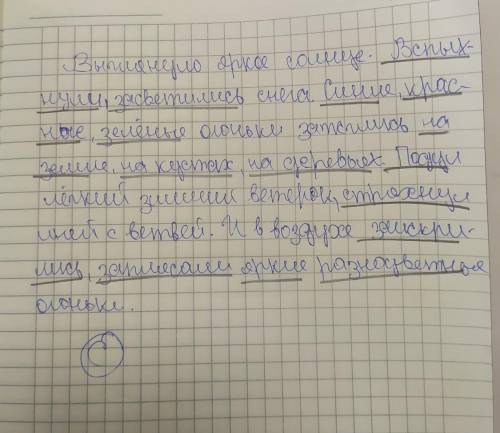 Выглянуло яркое солнце. Вспых-
нули, засветились снега. Синие, крас-
ные, зелёные огоньки затеплись на
земле, на кустах, на деревьях. Подул
лёгкий зимний ветерок, стряхнул
иней с ветвей. И в воздухе заискри-
лись, заплясали яркие разноцветные
огоньки.